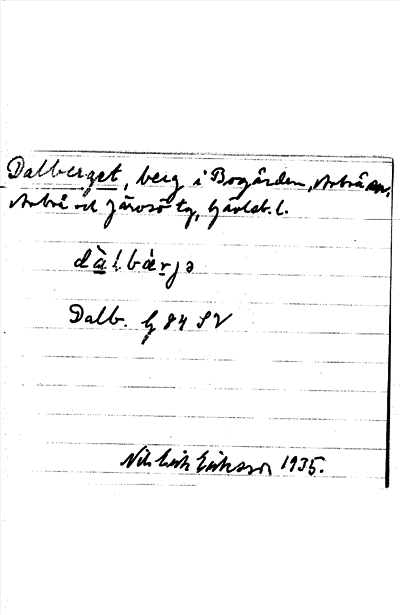 Dalberget, berg i Bogården, Arbrå sn,
Arbrå och Järvsö tg, Gävleb. l.
dàlbærjə
Dalb. G 84 SV
Nils Erik Eriksson 1935.